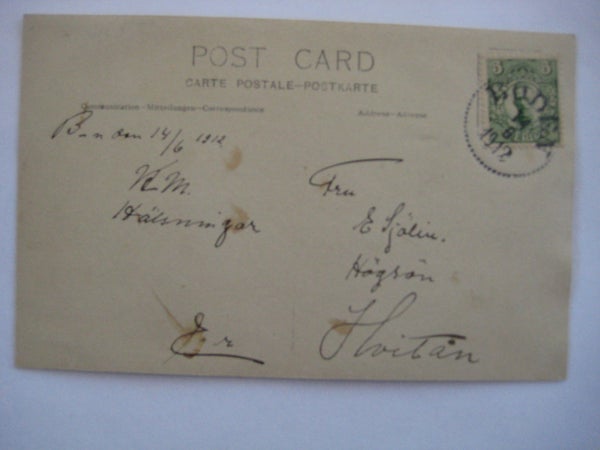 POST CARD
CARTE POSTALE-POSTKARTE
Communication-Mitteilungen-Correspondance
Address-Adresse
B-n den 14/6 1912
K.M.
Hälsningar
Fru
E Sjölin.
Högsön
Hvitån
5 5
1912